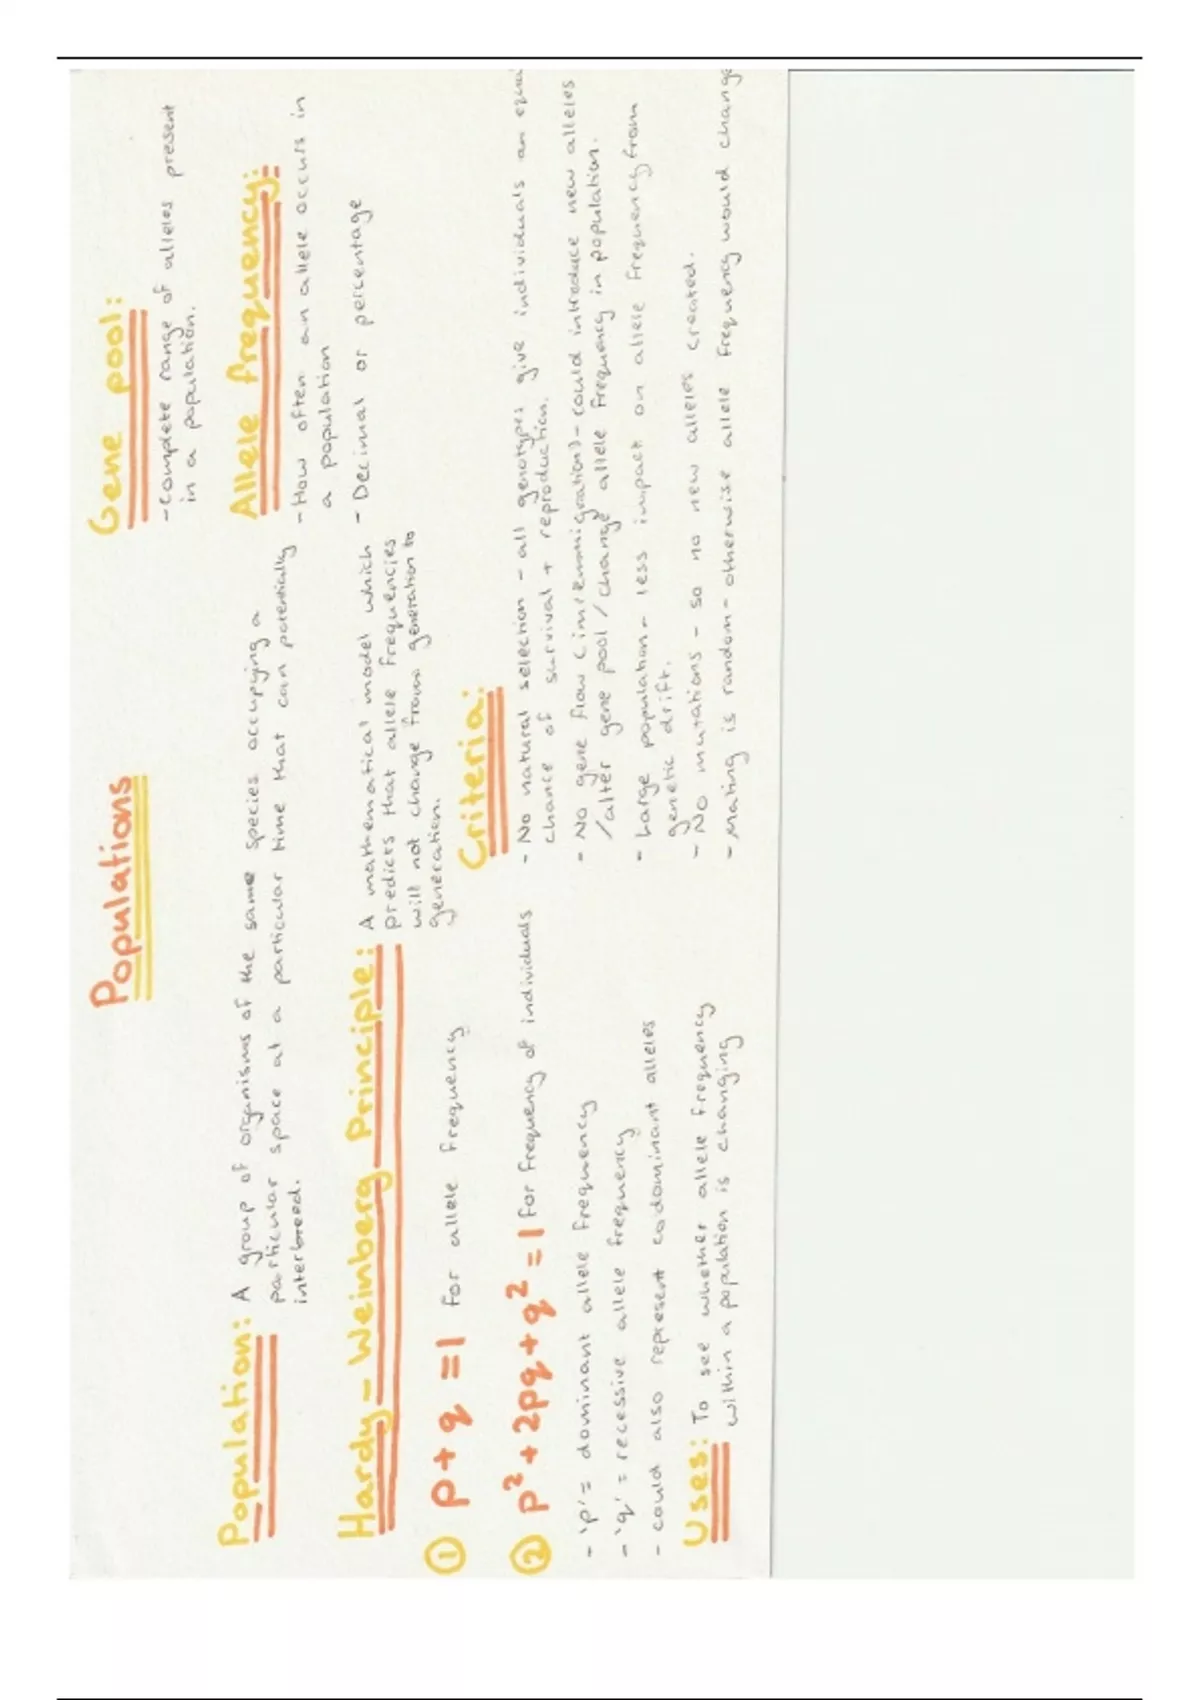 Populations
Population: A group of organisms of the same species occupying a
particular space at a particular time that can potentially
interbreed.
Gene pool:
- Complete range of alleles present
in a population.
Allele frequency:
- How often an allele occurs in
a population
- Decimal or percentage
Hardy - Weinberg Principle: A mathematical model which
predicts that allele frequencies
will not change from generation to
generation.
① p + q = 1 for allele frequency
② p² + 2pq + q² = 1 for frequency of individuals
- 'p' = dominant allele frequency
- 'q' = recessive allele frequency
- could also represent codominant alleles
Uses: To see whether allele frequency
within a population is changing
Criteria:
- No natural selection - all genotypes give individuals an
chance of survival + reproduction.
- No gene flow (im/emmigration) - could introduce new alleles
/alter gene pool / change allele frequency in population.
- Large population - less impact on allele frequency from
genetic drift.
- No mutations - so no new alleles created.
- Mating is random - otherwise allele frequency would change